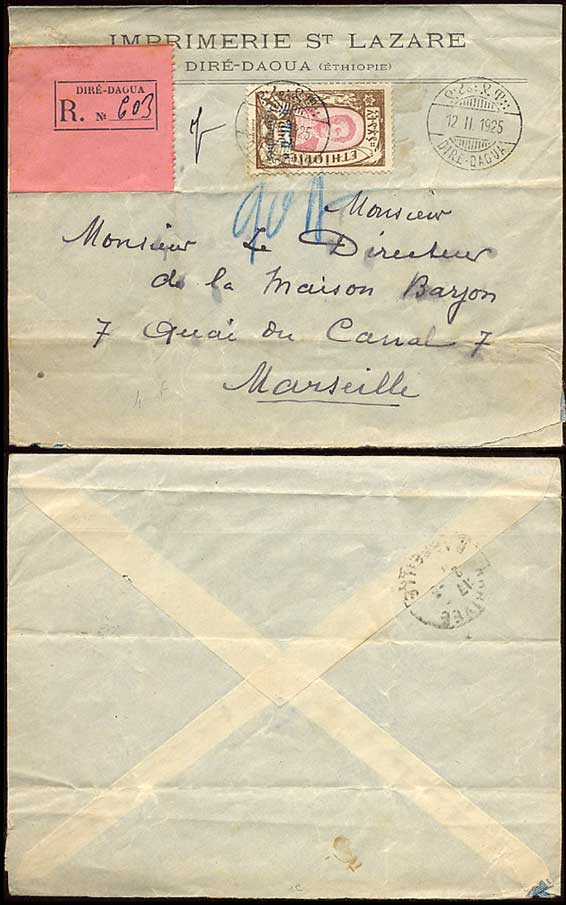 IMPRIMERIE ST LAZARE
DIRÉ-DAOUA (ÉTHIOPIE)
DIRÉ-DAOUA
R. No 603
ETHIOPIE
12 II. 1925
DIRÉ-DAOUA
Monsieur
Monsieur Le Directeur
de la Maison Barjon
7 Quai du Canal 7
Marseille
MARSEILLE
ARRIVEE